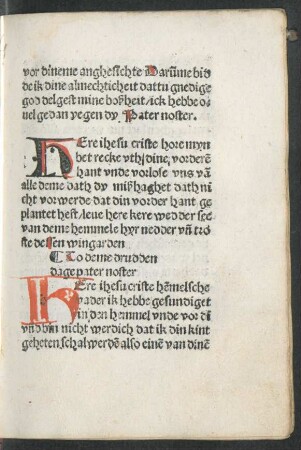 vor dineme anghesichte Darūme bid
de ik dine almechticheit dattu gnedige
god delgest mine boßheit / ick hebbe o⸗
uel gedan yegen dy / Pater noster.
HEre ihesu criste hore myn
bet recke vth dine, vorderē
hant vnde vorlose vns vā
alle deme dath dy mißhaghet dath nicht
vorwerde dat din vorder hant ge
plantet hest / leue here kere wedder see
van deme hemmele hyr nedder vn̄ tro
ste dessen wingarden
¶ To deme drudden
dage pater noster
HEre ihesu criste hēmelsche
vader ik hebbe gesundiget
in den hemmel vnde vor di
vnd bin nicht werdich dat ik din kint
geheten schal werdē also einē van dinē